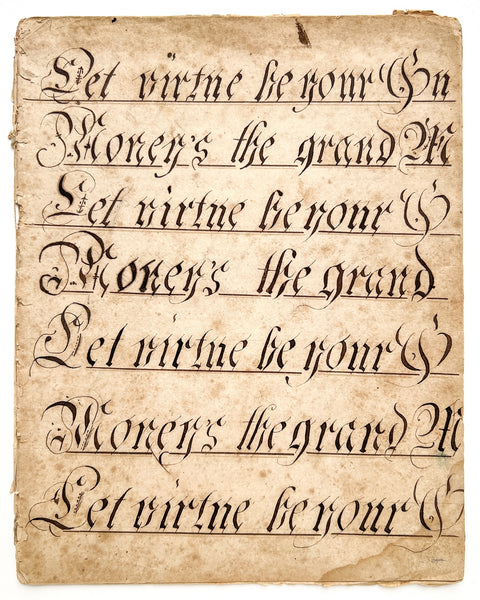 Let virtue be your Gu
Money's the grand M
Let virtue be your G
Money's the grand
Let virtue be your G
Money's the grand M
Let virtue be your G